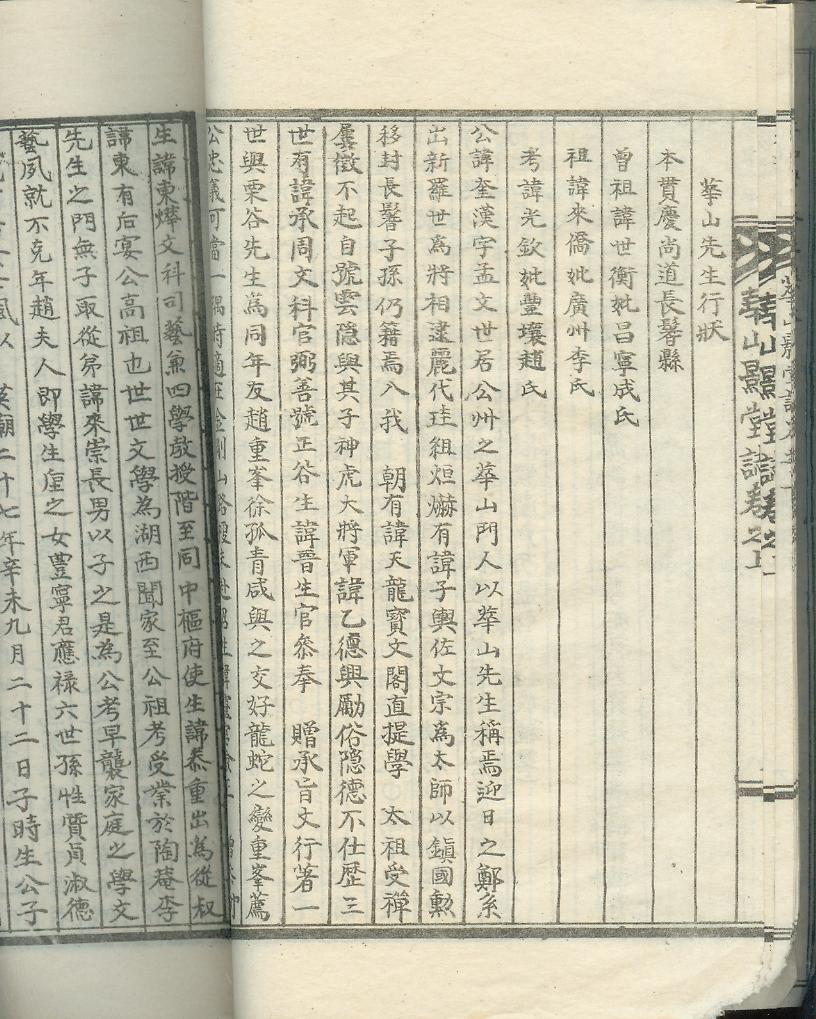 華山顯堂誌卷之上
華山先生行狀
本貫慶尚道長鬐縣
曾祖諱世衡妣昌寧成氏
祖諱來僑妣廣州李氏
考諱光欽妣豐壤趙氏
公諱奎漢字孟文世居公州之華山門人以華山先生稱焉迎日之鄭系
出新羅世為將相逮麗代珪組烜爀有諱子輿佐文宗為太師以鎭國勳
移封長鬐子孫仍籍焉入我 朝有諱天龍寶文閣直提學 太祖受禪
屢徵不起自號雲隱與其子神虎大將軍諱乙德興勵俗隱德不仕歷三
世有諱承周文科官弼善號正谷生諱晉生官叅奉 贈承旨文行著一
世與栗谷先生為同年友趙重峯徐孤青咸與之交好龍蛇之變重峯薦
公忠義可當一隅時適在金剛山
生諱東燁文科司藝兼四學敎授階至同中樞府使生諱泰重出為從叔
諱東有后宴公高祖也世世文學為湖西聞家至公祖考受業於陶菴李
先生之門無子取從弟諱來崇長男以子之是為公考早襲家庭之學文
藝夙就不克年趙夫人即學生 之女豊寧君應祿六世孫性質貞淑德
以 英廟二十七年辛未九月二十二日子時生公子